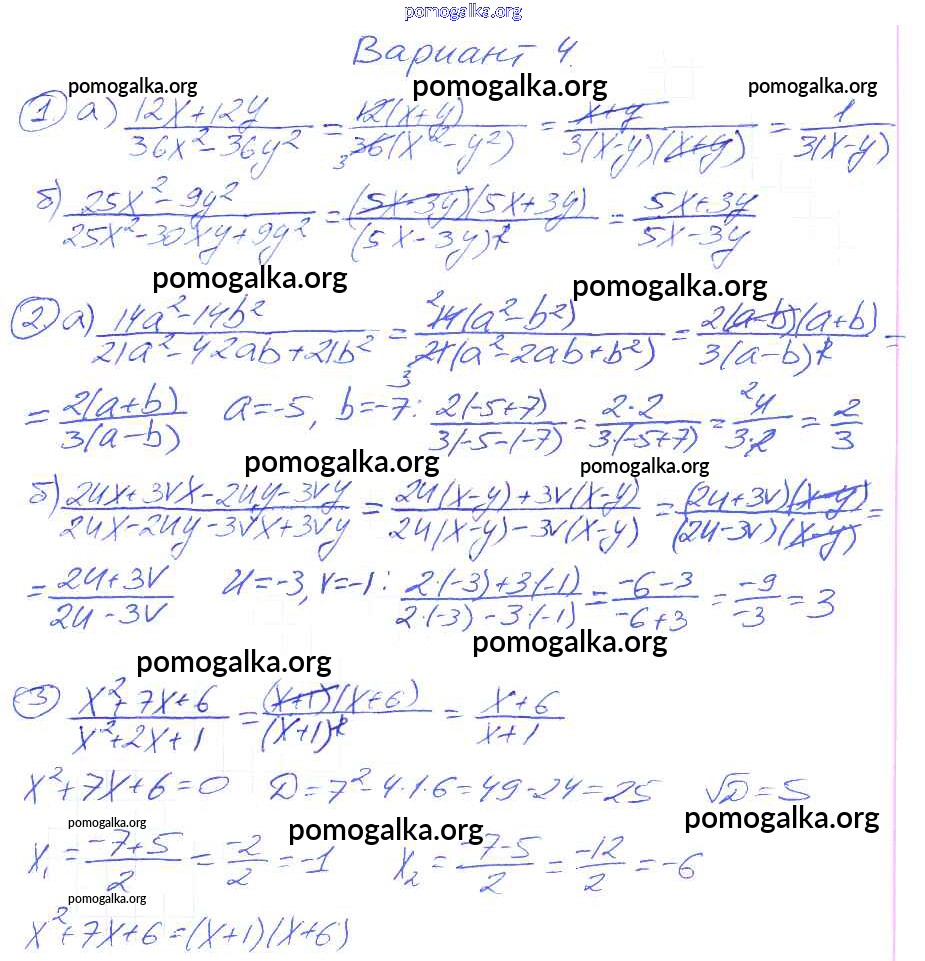 pomogalka.org
Вариант 4.
pomogalka.org pomogalka.org pomogalka.org
1. а) (12x+12y)/(36x²-36y²) = 12(x+y)/36(x²-y²) = (x+y)/3(x-y)(x+y) = 1/3(x-y)
б) (25x²-9y²)/(25x²-30xy+9y²) = (5x-3y)(5x+3y)/(5x-3y)² = (5x+3y)/(5x-3y)
pomogalka.org pomogalka.org
2. а) (14a²-14b²)/(21a²-42ab+21b²) = 14(a²-b²)/21(a²-2ab+b²) = 2(a-b)(a+b)/3(a-b)² =
= 2(a+b)/3(a-b) a=-5, b=-7: 2(-5+7)/3(-5-(-7) = 2·2/3·(-5+7) = 4/3·2 = 2/3
pomogalka.org pomogalka.org
б) (2ux+3vx-2uy-3vy)/(2ux-2uy-3vx+3vy) = (2u(x-y)+3v(x-y))/(2u(x-y)-3v(x-y)) = (2u+3v)(x-y)/(2u-3v)(x-y) =
= (2u+3v)/(2u-3v) u=-3, v=-1: (2·(-3)+3(-1))/(2·(-3)-3·(-1)) = (-6-3)/(-6+3) = -9/-3 = 3
pomogalka.org pomogalka.org
3 (x²+7x+6)/(x²+2x+1) = (x+1)(x+6)/(x+1)² = (x+6)/(x+1)
x²+7x+6=0 D=7²-4·1·6=49-24=25 √D=5
pomogalka.org pomogalka.org pomogalka.org
x₁ = (-7+5)/2 = -2/2 = -1 x₂ = (-7-5)/2 = -12/2 = -6
pomogalka.org
x²+7x+6=(x+1)(x+6)